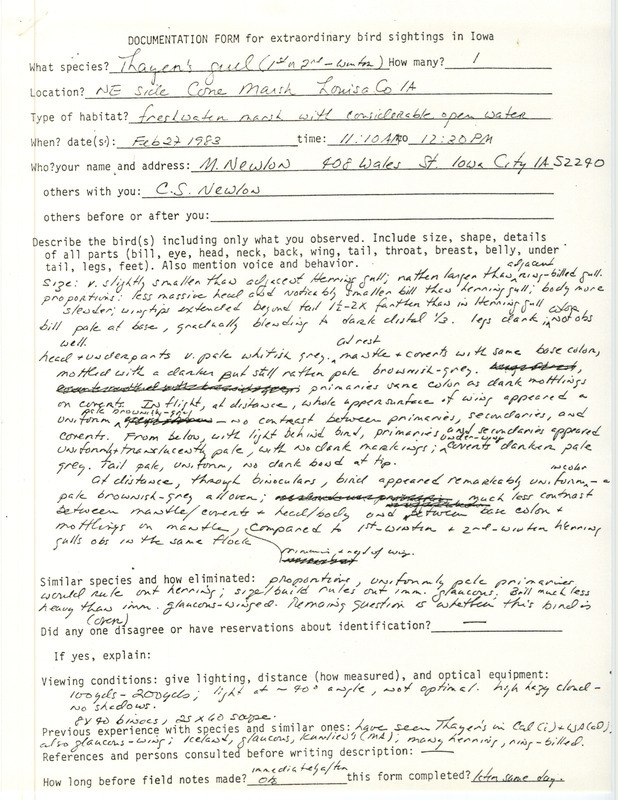 DOCUMENTATION FORM for extraordinary bird sightings in Iowa
What species? Thayer's gull (1st or 2nd-winter) How many? 1
Location? NE side Cone Marsh Louisa Co IA
Type of habitat? freshwater marsh with considerable open water
When? date(s): Feb 27 1983 time: 11:10 AM to 12:30 PM
Who? your name and address: M. Newlon 408 Wales St. Iowa City IA 52240
others with you: C.S. Newlon
others before or after you:
Describe the bird(s) including only what you observed. Include size, shape, details
of all parts (bill, eye, head, neck, back, wing, tail, throat, breast, belly, under
tail, legs, feet). Also mention voice and behavior.
adjacent
Size: v. slightly smaller than adjacent Herring gull; rather larger than ring-billed gull.
proportions: less massive head and noticably smaller bill than herring gull; body more
slender; wingtips extended beyond tail 1½-2X farther than in Herring gull
bill pale at base, gradually blending to dark distal ⅓. legs dark in color, not obs
well.
at rest
head + underparts v. pale whitish grey. mantle + coverts with some base color,
mottled with a darker but still rather pale brownish-grey.
primaries same color as dark mottlings
on coverts. In flight, at distance, whole upper surface of wing appeared a
pale brownish-grey
uniform - no contrast between primaries, secondaries, and
coverts. From below, with light behind bird, primaries and secondaries appeared
under-wing
uniformly + translucently pale, with no dark markings; coverts darker pale
grey. tail pale, uniform, no dark band at tip.
in color
At distance, through binoculars, bird appeared remarkably uniform - a
pale brownish-grey all over; much less contrast
between mantle/coverts + head/body and between base color +
mottlings on mantle, compared to 1st-winter + 2nd-winter Herring
gulls obs in the same flock
Similar species and how eliminated: proportions, uniformly pale primaries
would rule out herring; size/build rules out imm. glaucous; Bill much less
heavy than imm. glaucous-winged. Remaing question is whether this bird is
Did any one disagree or have reservations about identification? —
If yes, explain:
Viewing conditions: give lighting, distance (how measured), and optical equipment:
100yds-200yds; light at ~ 90° angle, not optimal. high hazy cloud -
no shadows.
8X40 binocs, 25X60 scope.
Previous experience with species and similar ones: have seen Thayer's in Cal (1) + WA (2).
also glaucous-wing; Iceland, glaucous, Kumlien's (MA); many herring, ring-billed.
References and persons consulted before writing description: —
immediately after
How long before field notes made? obs this form completed? later same day.